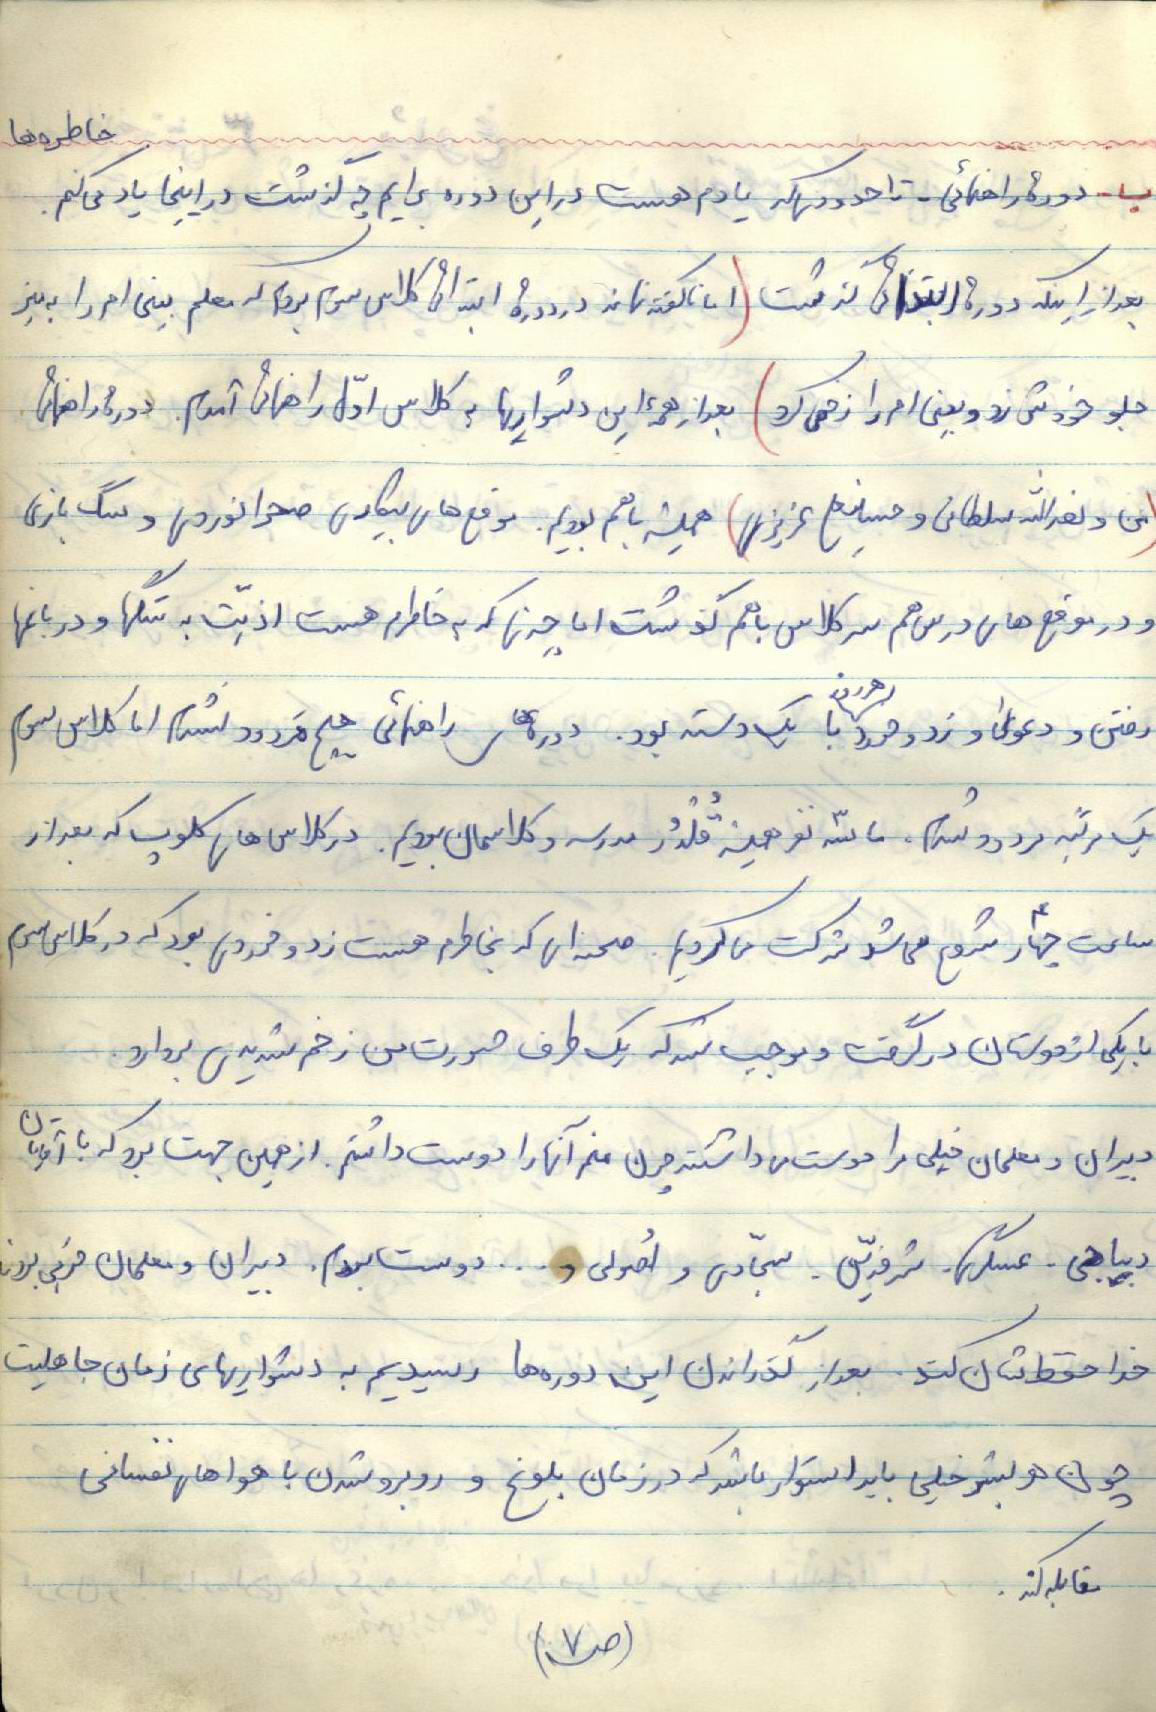 خاطره‌ها
ب - دورهٔ راهنمائی - تا حدودیکه یادم هست در این دوره برایم چه گذشت در اینجا یاد میکنم.
بعد از اینکه دورهٔ ابتدائی گذشت (اما ناگفته نماند در دورهٔ ابتدائی کلاس سوم بودم که معلم بینی ام را به میز
جلو خودش زد و بینی ام را زخمی کرد) بعد از همهٔ این دشواریها به کلاس اوّل راهنمائی آمدم. دورهٔ راهنمائی
(من و نصرالله سلطانی و حسینعلی عزیزی) همیشه باهم بودیم. موقع های بیکاری صحرانوردی و سگ بازی
و در موقع های درس هم سر کلاس باهم گذشت اما چیزی که به خاطرم هست اذیّت به سگها و در باغها
رفتن و دعوای و زد و خورد با هر روزه یک دسته بود. دوره‌های راهنمائی هیچ مردود نشدم اما کلاس سوم
یک مرتبه مردود شدم. ما سه نفر همیشه قُلْدُر مدرسه و کلاسمان بودیم. در کلاس های کلوپ که بعد از
ساعت چهار ۴ شروع می شد شرکت می کردیم. صحنه ای که بخاطرم هست زد و خوردی بود که در کلاس سوم
با یکی از دوستان در گرفت و موجب شد که یک طرف صورت من زخم شدیدی بردارد.
دبیران و معلمان خیلی مرا دوست می داشتند چون منم آنها را دوست داشتم. از همین جهت بود که با آقایان
دیباجی - عسگری - شرفی - سجّادی و اُصولی و ... دوست بودم. دبیران و معلمان خوبی بودند
خدا حفظشان کند. بعد از گذراندن این دوره‌ها رسیدیم به دشواریهای زمان جاهلیت
چون هر بشر خیلی باید استوار باشد که در زمان بلوغ و روبرو شدن با هواهای نفسانی
مقابله کند.
(ص ۷)